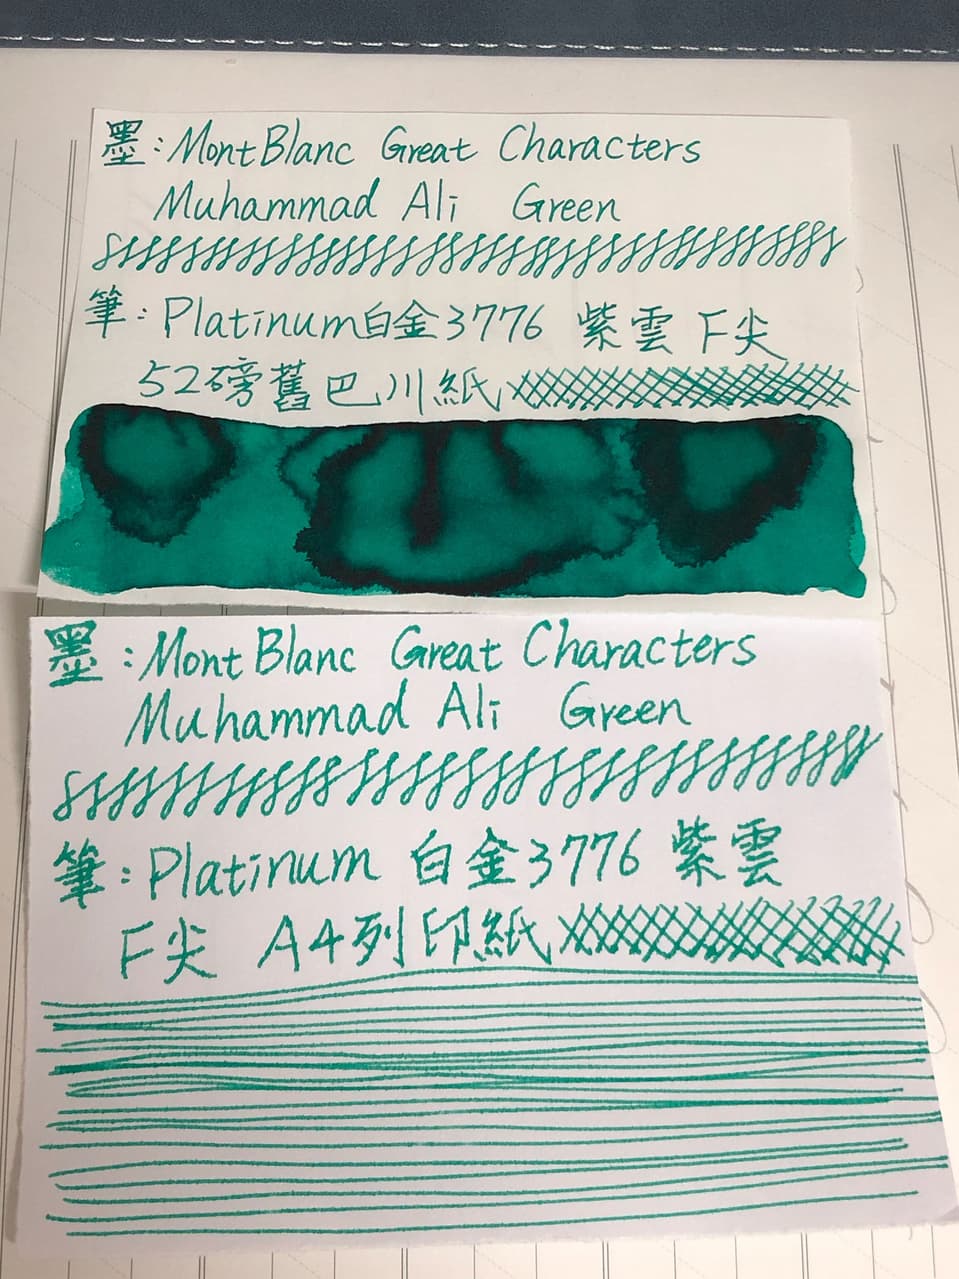 墨:MontBlanc Great Characters
Muhammad Ali Green
筆:Platinum白金3776 紫雲 F尖
52磅舊巴川紙
墨:MontBlanc Great Characters
Muhammad Ali Green
筆:Platinum 白金3776 紫雲
F尖 A4列印紙